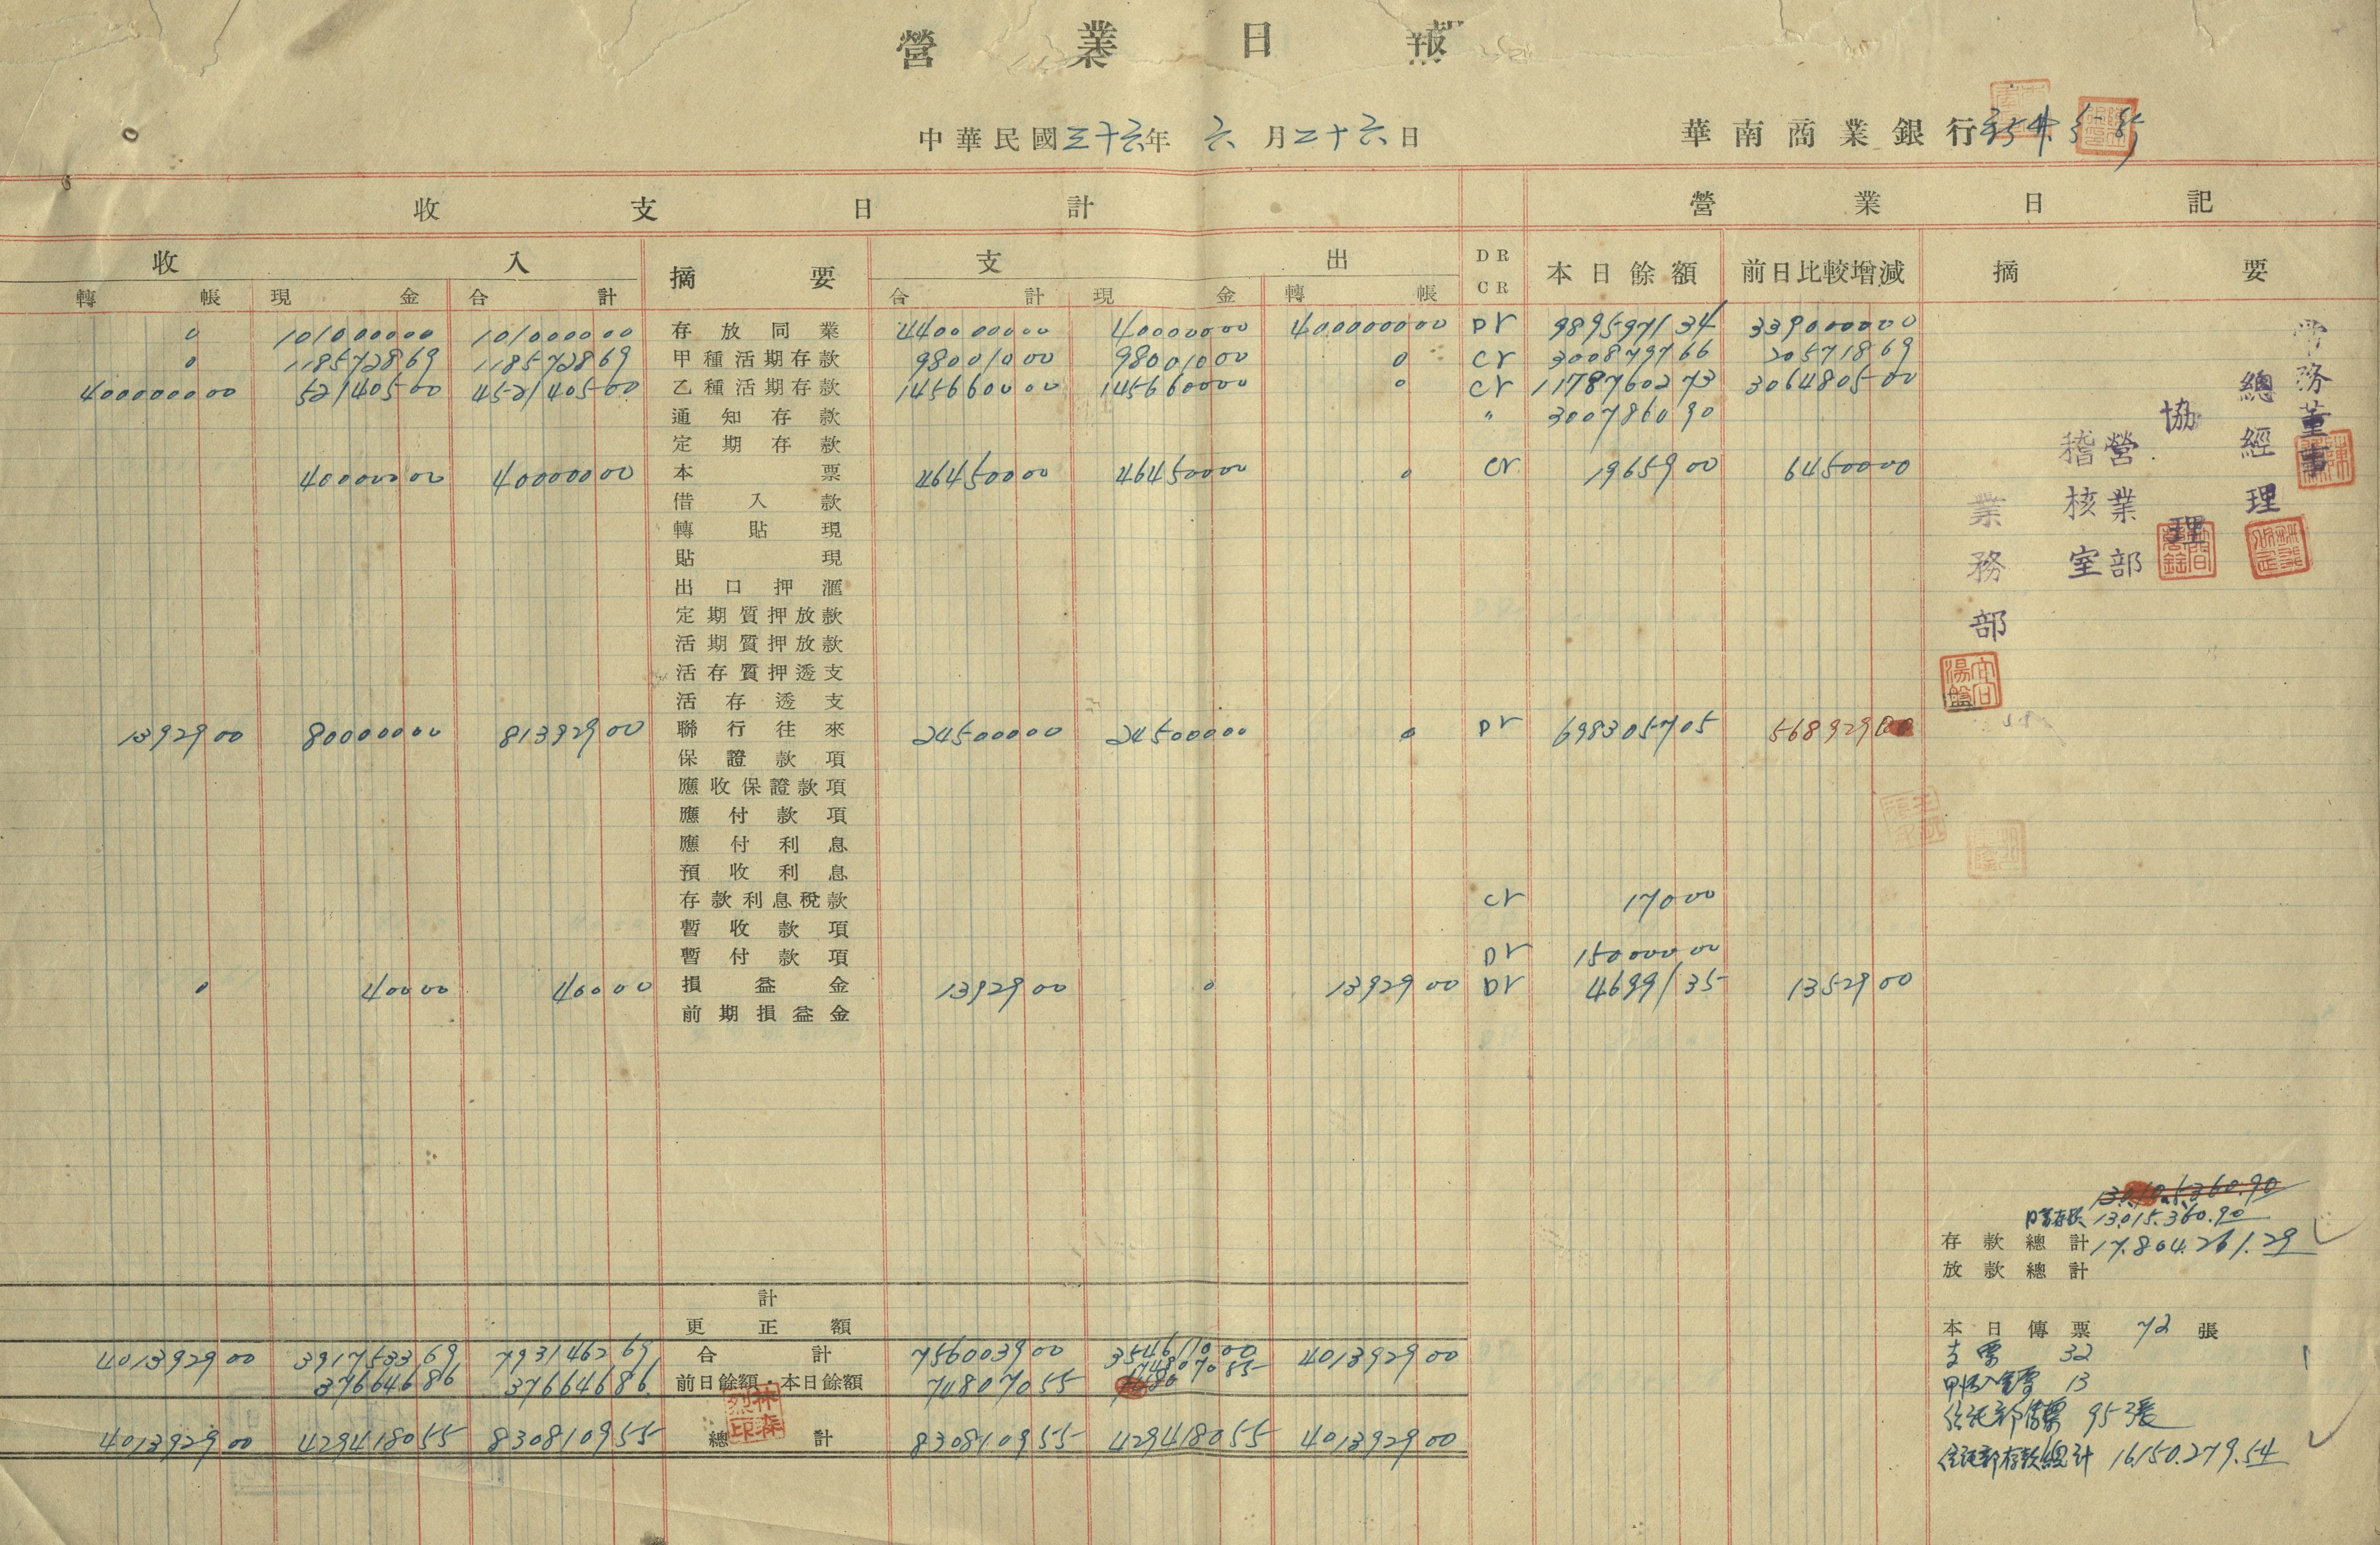 營業日報
中華民國三十六年 六月二十六日 華南商業銀行新井分行
收支日計 營業日記
收入 摘要 支出 DR CR 本日餘額 前日比較增減 摘要
轉帳 現金 合計 合計 現金 轉帳
0 1010000 00 1010000 00 存放同業 4400000 00 400000 00 4000000 00 Dr 9895971 34 3390000 00
0 1185728 69 1185728 69 甲種活期存款 980010 00 980010 00 0 Cr 3008797 66 205718 69
4000000 00 521405 00 4521405 00 乙種活期存款 1456600 00 1456600 00 0 Cr 11787602 73 3064805 00
通知存款 〃 3007860 90
定期存款
400000 00 400000 00 本票 464500 00 464500 00 0 Cr 19659 00 64500 00
借入款
轉貼現
貼現
出口押滙
定期質押放款
活期質押放款
活存質押透支
活存透支
13929 00 800000 00 813929 00 聯行往來 245000 00 245000 00 0 Dr 6983057 05 568929 00
保證款項
應收保證款項
應付款項
應付利息
預收利息
存款利息稅款 Cr 170 00
暫收款項
暫付款項 Dr 150000 00
0 400 00 400 00 損益金 13929 00 0 13929 00 Dr 46991 35 13529 00
前期損益金
常務董事
總經理
協理
營業部
稽核室
業務部
13,015,360.90
存款總計 17,804,261.29
放款總計
計
更正額
4013929 00 3917533 69 7931462 69 合計 7560039 00 3546110 00 4013929 00
376646 86 376646 86 前日餘額・本日餘額 748070 55 748070 55
4013929 00 4294180 55 8308109 55 總計 8308109 55 4294180 55 4013929 00
本日傳票 72 張
支票 32
13
信託部傳票 95張
信託部存款總計 16,150,279.54